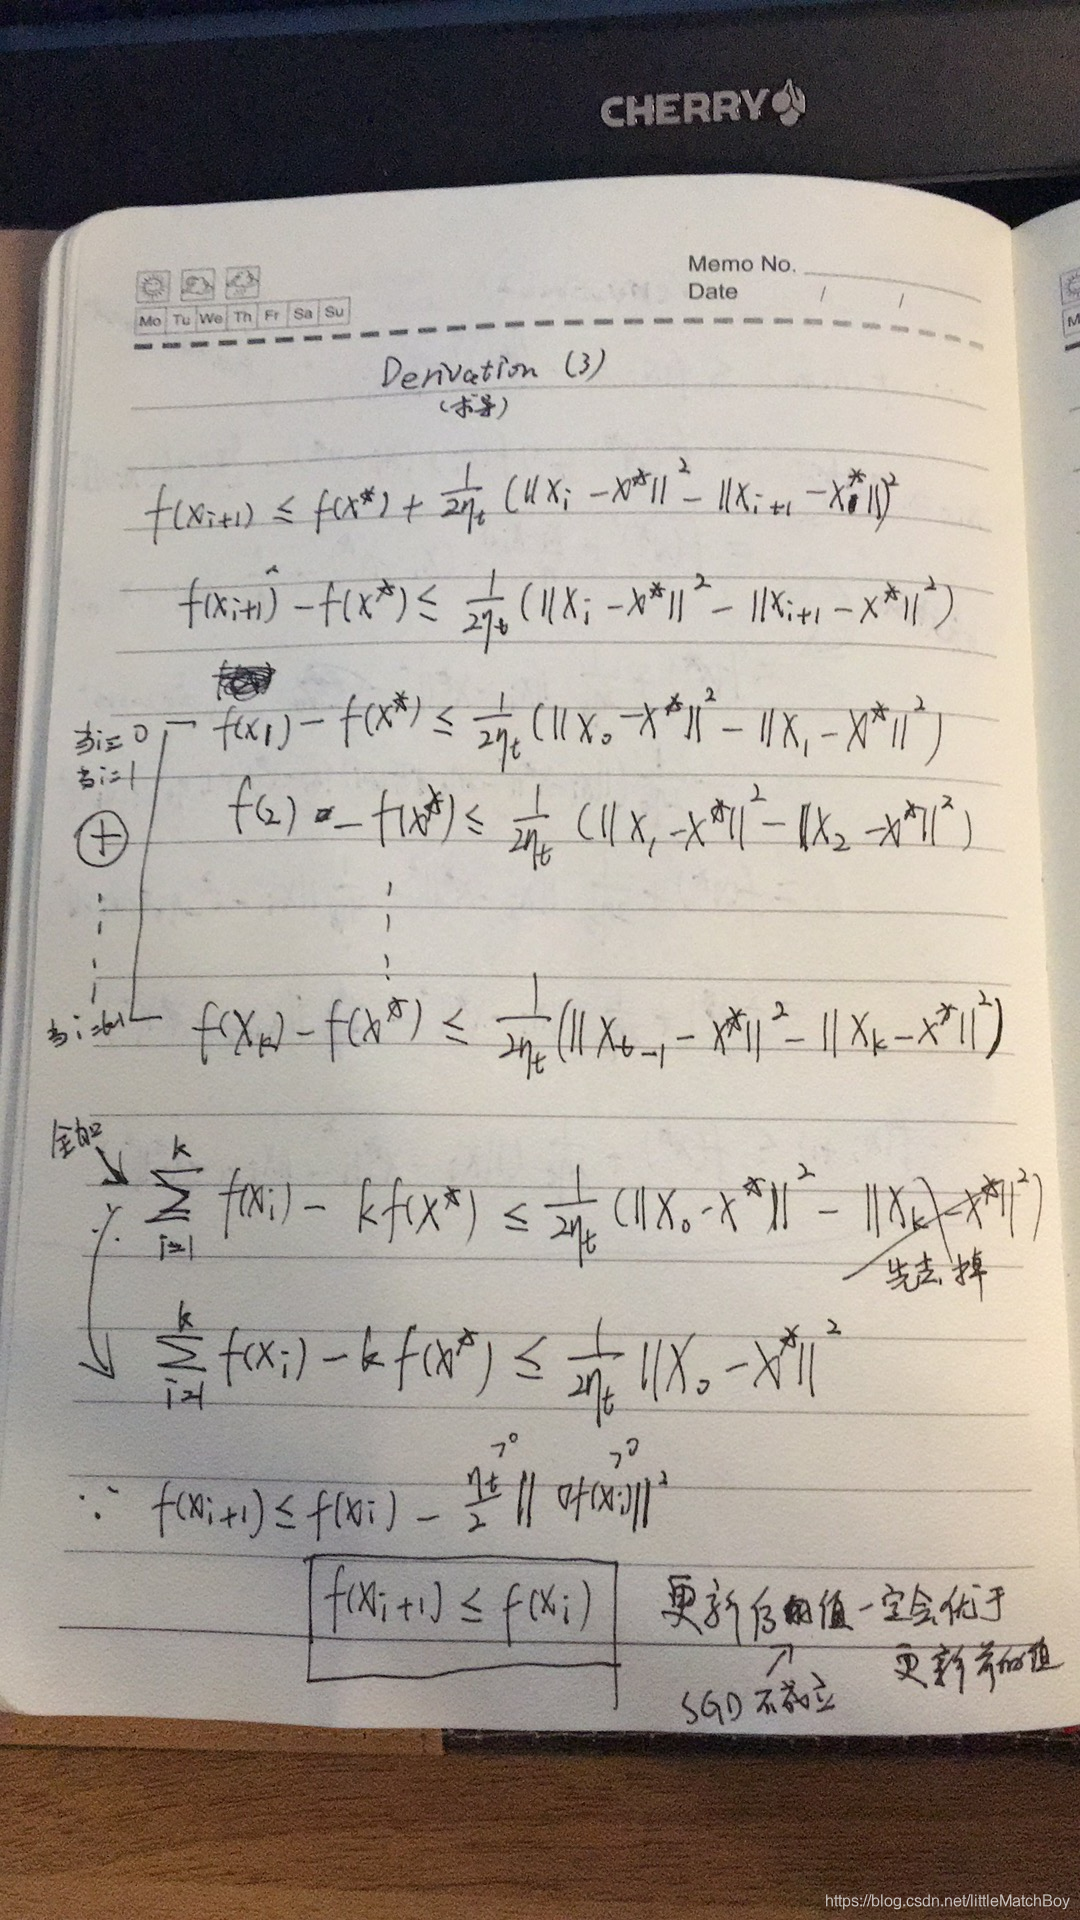 CHERRY
Memo No.
Date / /
Mo Tu We Th Fr Sa Su
Derivation (3)
(求导)
f(x_{i+1}) ≤ f(x*) + 1/(2η_t) (||x_i - x*||² - ||x_{i+1} - x*||)²
f(x_{i+1}) - f(x*) ≤ 1/(2η_t) (||x_i - x*||² - ||x_{i+1} - x*||²)
当i=0 f(x_1) - f(x*) ≤ 1/(2η_t) (||x_0 - x*||² - ||x_1 - x*||²)
当i=1 f(2) - f(x*) ≤ 1/(2η_t) (||x_1 - x*||² - ||x_2 - x*||²)
⊕
当i=k-1 f(x_k) - f(x*) ≤ 1/(2η_t) (||x_{t-1} - x*||² - ||x_k - x*||²)
全加
∴ Σ_{i=1}^{k} f(x_i) - k f(x*) ≤ 1/(2η_t) (||x_0 - x*||² - ||x_k - x*||²)
先去掉
Σ_{i=1}^{k} f(x_i) - k f(x*) ≤ 1/(2η_t) ||x_0 - x*||²
>0 >0
∵ f(x_{i+1}) ≤ f(x_i) - η_t/2 ||∇f(x_i)||²
f(x_{i+1}) ≤ f(x_i) 更新后的值一定会优于
更新前的值
SGD不成立
https://blog.csdn.net/littleMatchBoy